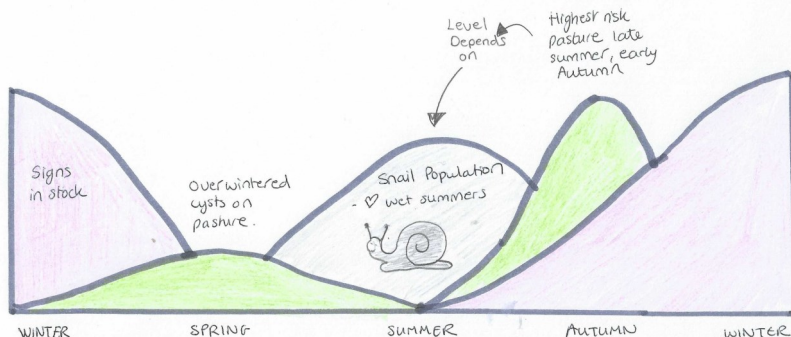 Level
Depends
on
Highest risk
pasture late
summer, early
Autumn
Signs
in stock
Overwintered
cysts on
pasture.
Snail Population
- ♡ wet summers
WINTER
SPRING
SUMMER
AUTUMN
WINTER